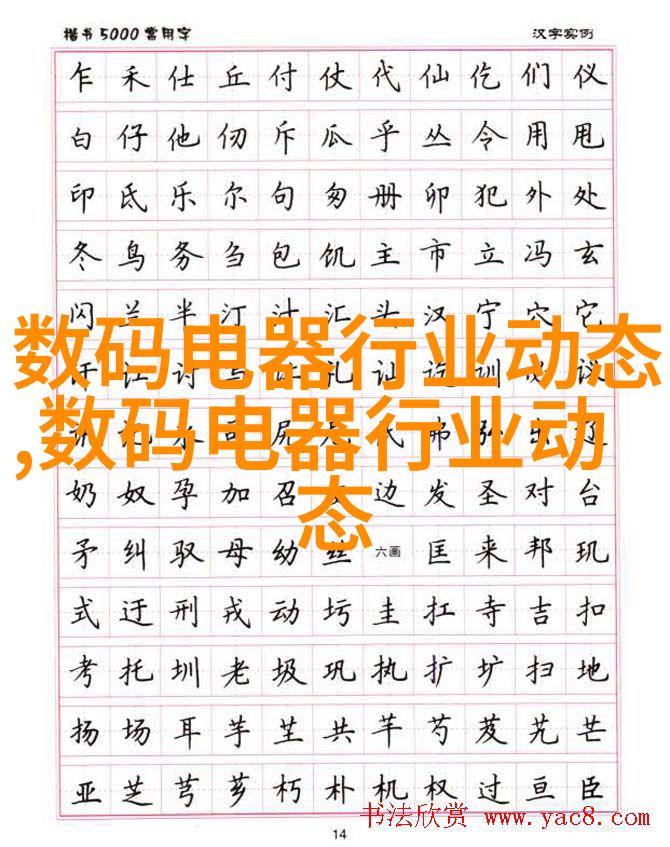 楷书5000常用字 汉字实例
乍 禾 仕 丘 付 仗 代 仙 仡 们 仪
白 仔 他 仞 斥 瓜 乎 丛 令 用 甩
印 氐 乐 尔 句 匆 册 卯 犯 外 处
冬 鸟 务 刍 包 饥 主 市 立 冯 玄
闪 兰 半 汀 汁 汇 头 汉 宁 穴 它
数码电器行业动态
讨 写 礼 讪 训 议
,数码电器行业动
态
弗 弘 出 辽
奶 奴 孕 加 召 边 发 圣 对 台
矛 纠 驭 母 幼 丝 六画 匡 来 邦 玑
式 迂 刑 戎 动 圬 圭 扛 寺 吉 扣
考 托 圳 老 圾 巩 执 扩 圹 扫 地
扬 场 耳 芋 芏 共 芊 芍 芨 芄 芒
亚 芝 芎 芗 朽 朴 机 权 过 亘 臣
书法欣赏 www.yac8.com
14